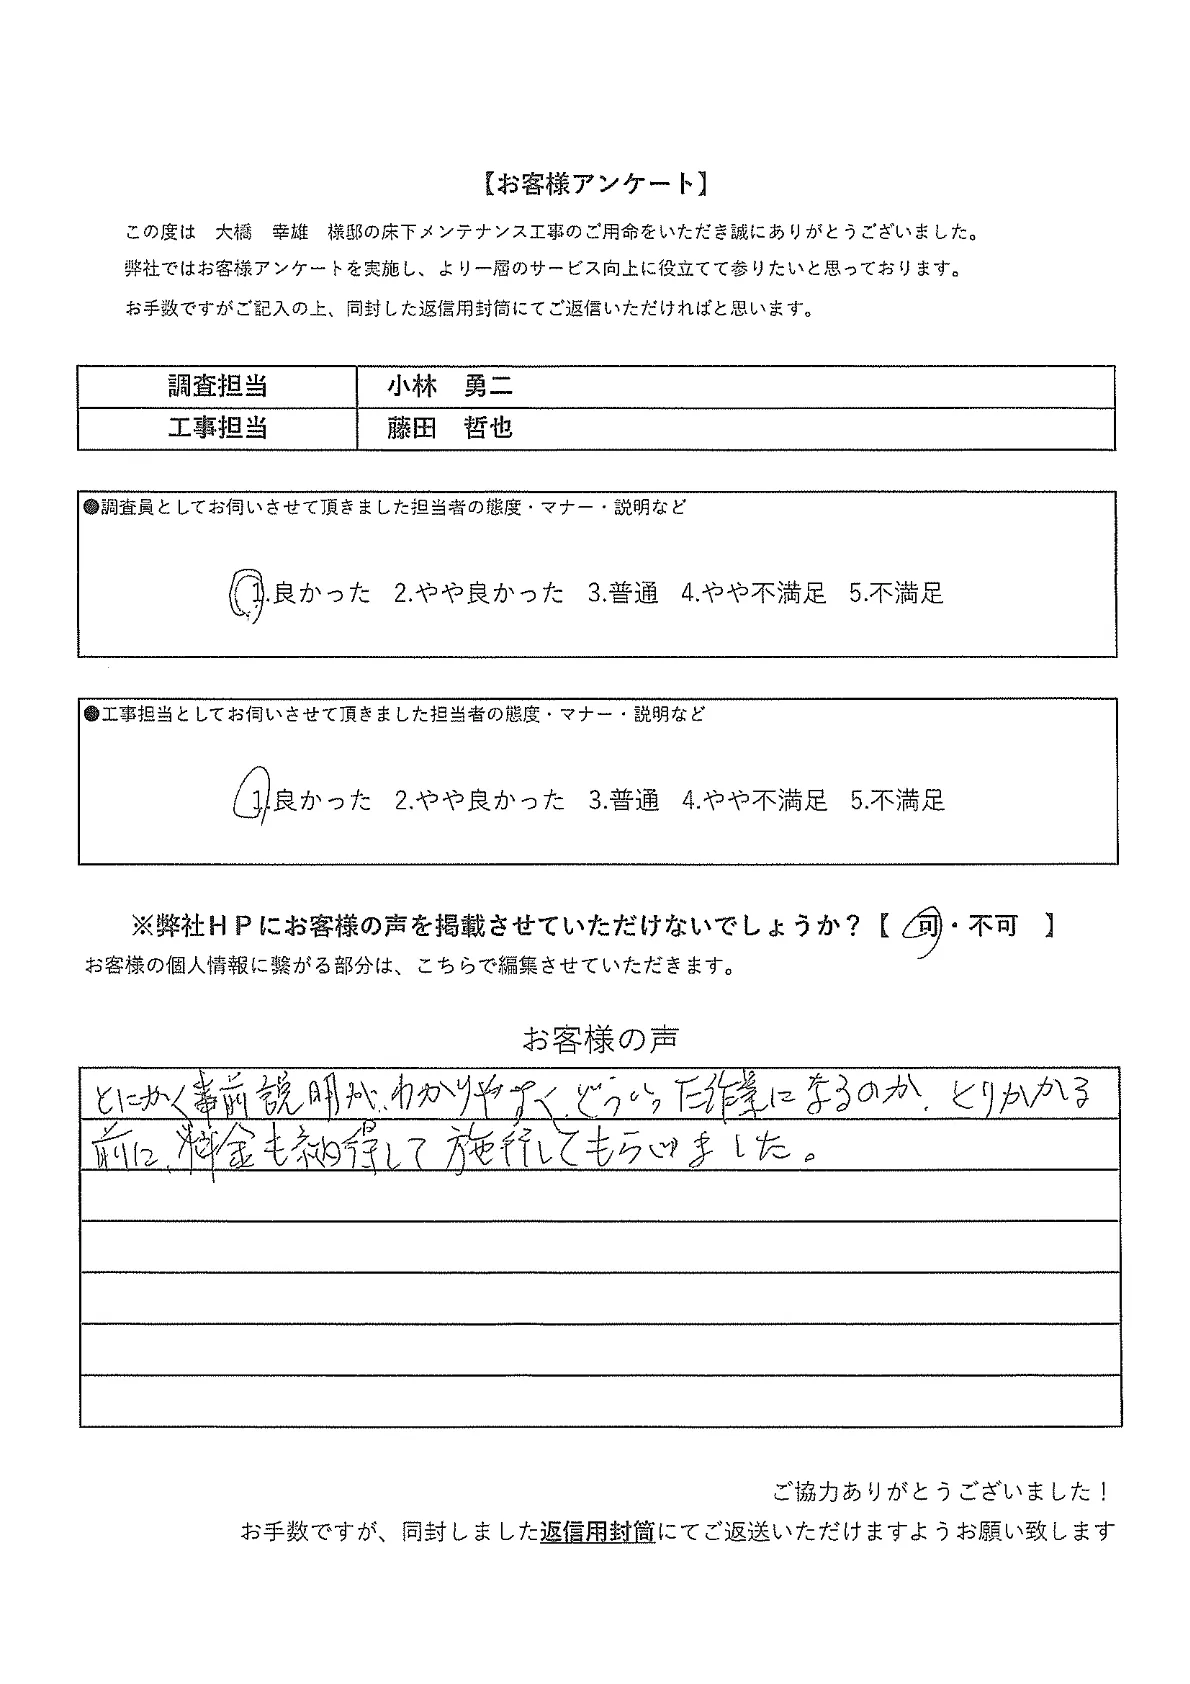 【お客様アンケート】
この度は　大橋　幸雄　様邸の床下メンテナンス工事のご用命をいただき誠にありがとうございました。
弊社ではお客様アンケートを実施し、より一層のサービス向上に役立てて参りたいと思っております。
お手数ですがご記入の上、同封した返信用封筒にてご返信いただければと思います。
調査担当　小林　勇二
工事担当　藤田　哲也
●調査員としてお伺いさせて頂きました担当者の態度・マナー・説明など
1.良かった　2.やや良かった　3.普通　4.やや不満足　5.不満足
●工事担当としてお伺いさせて頂きました担当者の態度・マナー・説明など
1.良かった　2.やや良かった　3.普通　4.やや不満足　5.不満足
※弊社ＨＰにお客様の声を掲載させていただけないでしょうか？【　可・不可　】
お客様の個人情報に繋がる部分は、こちらで編集させていただきます。
お客様の声
とにかく事前説明が、わかりやすく、どういった作業になるのか、とりかかる
前に、料金も納得して施行してもらいました。
ご協力ありがとうございました！
お手数ですが、同封しました返信用封筒にてご返送いただけますようお願い致します